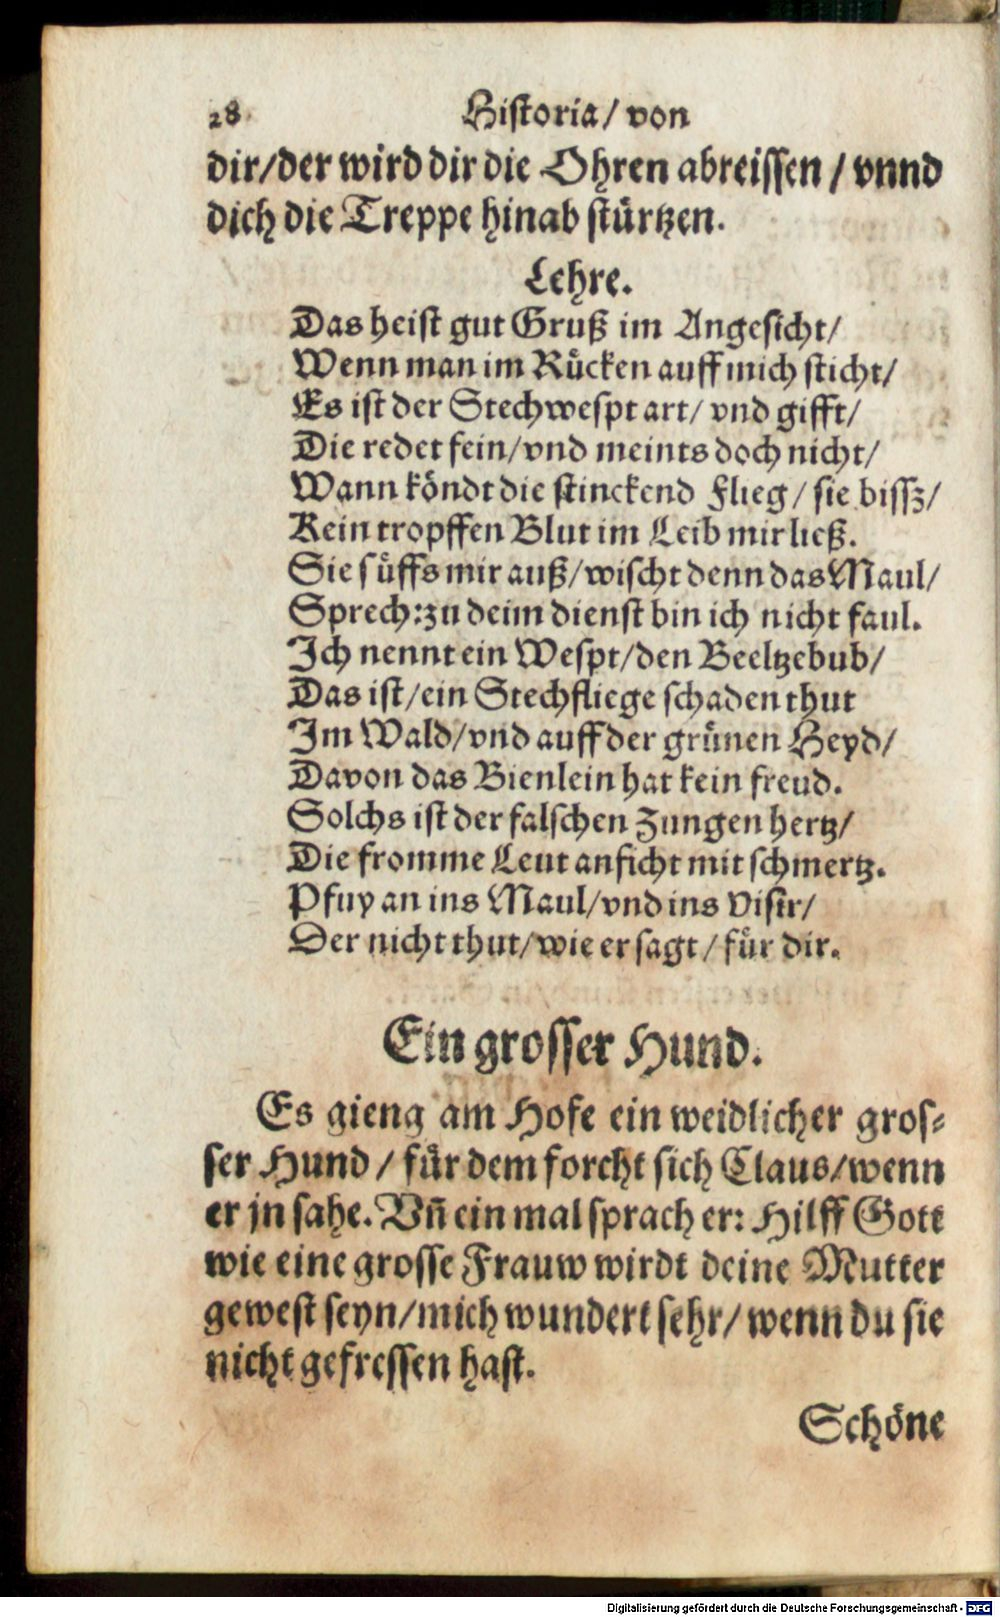 28 Historia/ von
dir/der wird dir die Ohren abreissen / vnnd
dich die Treppe hinab stürtzen.
Lehre.
Das heist gut Gruß im Angesicht/
Wenn man im Rücken auff mich sticht/
Es ist der Stechwespt art/ vnd gifft/
Die redet fein/vnd meints doch nicht/
Wann köndt die stinckend Flieg/ sie bissz/
Kein tropffen Blut im Leib mir ließ.
Sie süffs mir auß/wischt denn das Maul/
Sprech:zu deim dienst bin ich nicht faul.
Ich nennt ein Wespt/den Beeltzebub/
Das ist/ein Stechfliege schaden thut
Im Wald/vnd auff der grünen Heyd/
Davon das Bienlein hat kein freud.
Solchs ist der falschen Zungen hertz/
Die fromme Leut anficht mit schmertz.
Pfuy an ins Maul/vnd ins Visir/
Der nicht thut/wie er sagt/für dir.
Ein grosser Hund.
Es gieng am Hofe ein weidlicher gros⸗
ser Hund / für dem forcht sich Claus/wenn
er jn sahe. Vñ ein mal sprach er: Hilff Gott
wie eine grosse Frauw wirdt deine Mutter
gewest seyn/mich wundert sehr/ wenn du sie
nicht gefressen hast.
Schöne
Digitalisierung gefördert durch die Deutsche Forschungsgemeinschaft - DFG